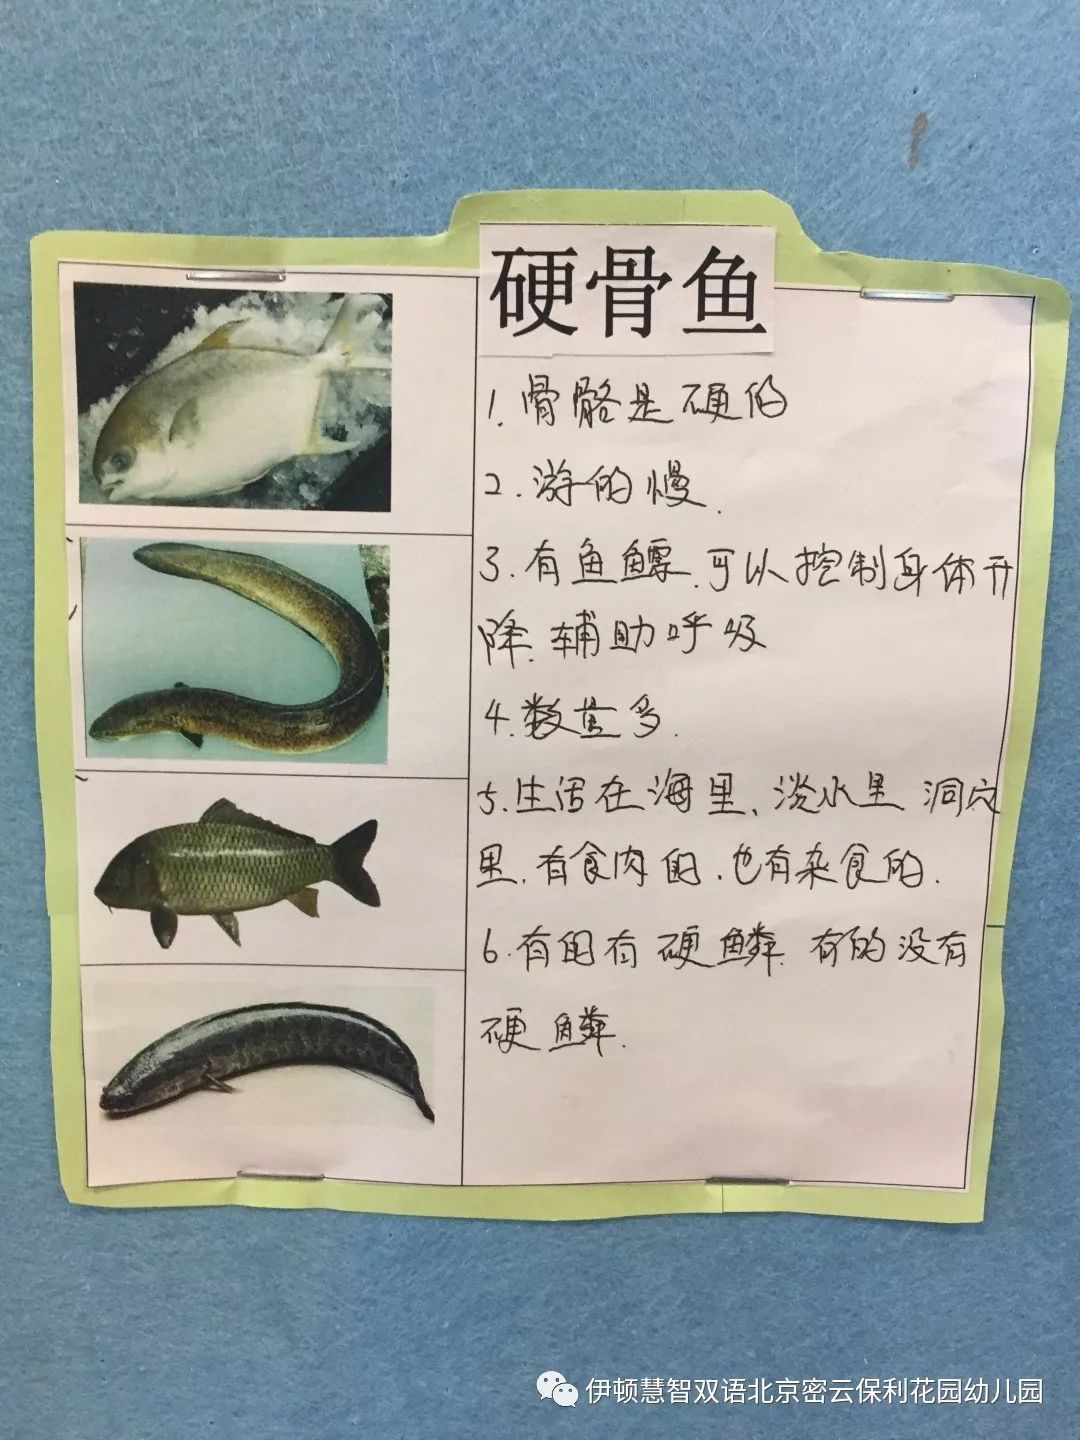 硬骨鱼
1.骨骼是硬的
2.游的慢.
3.有鱼鳔.可以控制身体升
降.辅助呼吸
4.数量多.
5.生活在海里、淡水里 洞穴
里.有食肉的.也有杂食的.
6.有的有硬鳞.有的没有
硬鳞.
伊顿慧智双语北京密云保利花园幼儿园